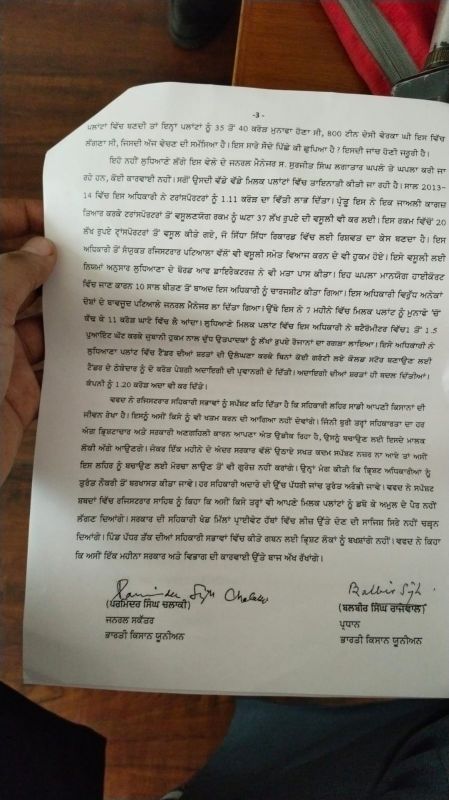 -3-
ਪਲਾਂਟਾਂ ਵਿੱਚ ਬਣਦੀ ਤਾਂ ਇਨ੍ਹਾਂ ਪਲਾਂਟਾਂ ਨੂੰ 35 ਤੋਂ 40 ਕਰੋੜ ਮੁਨਾਫਾ ਹੋਣਾ ਸੀ, 800 ਟੀਨ ਦੇਸੀ ਵੇਰਕਾ ਘੀ ਇਸ ਵਿੱਚ
ਲੱਗਣਾ ਸੀ, ਜਿਸਦੀ ਅੱਜ ਵੇਚਣ ਦੀ ਸਮੱਸਿਆ ਹੈ। ਇਸ ਸਾਰੇ ਸੌਦੇ ਪਿੱਛੇ ਕੀ ਛੁਪਿਆ ਹੈ ? ਇਸਦੀ ਜਾਂਚ ਹੋਣੀ ਜਰੂਰੀ ਹੈ।
ਇਹੋ ਨਹੀਂ ਲੁਧਿਆਣੇ ਲੱਗੇ ਇਸ ਵੇਲੇ ਦੇ ਜਨਰਲ ਮੈਨੇਜਰ ਸ. ਸੁਰਜੀਤ ਸਿੰਘ ਲਗਾਤਾਰ ਘਪਲੇ ਤੇ ਘਪਲਾ ਕਰੀ ਜਾ
ਰਹੇ ਹਨ, ਕੋਈ ਕਾਰਵਾਈ ਨਹੀਂ। ਸਗੋਂ ਉਸਦੀ ਵੱਡੇ ਵੱਡੇ ਮਿਲਕ ਪਲਾਂਟਾਂ ਵਿੱਚ ਤਾਇਨਾਤੀ ਕੀਤੀ ਜਾ ਰਹੀ ਹੈ। ਸਾਲ 2013-
14 ਵਿੱਚ ਇਸ ਅਧਿਕਾਰੀ ਨੇ ਟਰਾਂਸਪੋਰਟਰਾਂ ਨੂੰ 1.11 ਕਰੋੜ ਦਾ ਵਿੱਤੀ ਲਾਭ ਦਿੱਤਾ। ਪ੍ਰੰਤੂ ਇਸ ਨੇ ਇਕ ਜਾਅਲੀ ਕਾਗਜ਼
ਤਿਆਰ ਕਰਕੇ ਟਰਾਂਸਪੋਰਟਰਾਂ ਤੋਂ ਵਸੂਲਣਯੋਗ ਰਕਮ ਨੂੰ ਘਟਾ 37 ਲੱਖ ਰੁਪਏ ਦੀ ਵਸੂਲੀ ਵੀ ਕਰ ਲਈ। ਇਸ ਰਕਮ ਵਿੱਚੋਂ 20
ਲੱਖ ਰੁਪਏ ਟ੍ਰਾਂਸਪੋਰਟਰਾਂ ਤੋਂ ਵਸੂਲ ਕੀਤੇ ਗਏ, ਜੋ ਸਿੱਧਾ ਸਿੱਧਾ ਰਿਕਾਰਡ ਵਿੱਚ ਲਈ ਰਿਸ਼ਵਤ ਦਾ ਕੇਸ ਬਣਦਾ ਹੈ। ਇਸ
ਅਧਿਕਾਰੀ ਤੋਂ ਸੰਯੁਕਤ ਰਜਿਸਟਰਾਰ ਪਟਿਆਲਾ ਵੱਲੋਂ ਵੀ ਵਸੂਲੀ ਸਮੇਤ ਵਿਆਜ ਕਰਨ ਦੇ ਵੀ ਹੁਕਮ ਹੋਏ। ਇਸੇ ਵਸੂਲੀ ਲਈ
ਨਿਯਮਾਂ ਅਨੁਸਾਰ ਲੁਧਿਆਣਾ ਦੇ ਬੋਰਡ ਆਫ ਡਾਇਰੈਕਟਰਜ਼ ਨੇ ਵੀ ਮਤਾ ਪਾਸ ਕੀਤਾ। ਇਹ ਘਪਲਾ ਮਾਨਯੋਗ ਹਾਈਕੋਰਟ
ਵਿੱਚ ਜਾਣ ਕਾਰਨ 10 ਸਾਲ ਬੀਤਣ ਤੋਂ ਬਾਅਦ ਇਸ ਅਧਿਕਾਰੀ ਨੂੰ ਚਾਰਜਸ਼ੀਟ ਕੀਤਾ ਗਿਆ। ਇਸ ਅਧਿਕਾਰੀ ਵਿਰੁੱਧ ਅਨੇਕਾਂ
ਦੋਸ਼ਾਂ ਦੇ ਬਾਵਜੂਦ ਪਟਿਆਲੇ ਜਨਰਲ ਮੈਨੇਜਰ ਲਾ ਦਿੱਤਾ ਗਿਆ। ਉੱਥੇ ਇਸ ਨੇ 7 ਮਹੀਨੇ ਵਿੱਚ ਮਿਲਕ ਪਲਾਂਟ ਨੂੰ ਮੁਨਾਫੇ 'ਚੋਂ
ਕੱਢ ਕੇ 11 ਕਰੋੜ ਘਾਟੇ ਵਿੱਚ ਲੈ ਆਂਦਾ। ਲੁਧਿਆਣੇ ਮਿਲਕ ਪਲਾਂਟ ਵਿੱਚ ਇਸ ਅਧਿਕਾਰੀ ਨੇ ਬਟੈਰੋਮੀਟਰ ਵਿੱਚ1 ਤੋਂ 1.5
ਪੁਆਇੰਟ ਘੱਟ ਕਰਕੇ ਜ਼ੁਬਾਨੀ ਹੁਕਮ ਨਾਲ ਦੁੱਧ ਉਤਪਾਦਕਾਂ ਨੂੰ ਲੱਖਾਂ ਰੁਪਏ ਰੋਜਾਨਾ ਦਾ ਰਗੜਾ ਲਾਇਆ। ਇਸੇ ਅਧਿਕਾਰੀ ਨੇ
ਲੁਧਿਆਣਾ ਪਲਾਂਟ ਵਿੱਚ ਟੈਂਡਰ ਦੀਆਂ ਸ਼ਰਤਾਂ ਦੀ ਉਲੰਘਣਾ ਕਰਕੇ ਬਿਨਾਂ ਕੋਈ ਗਰੰਟੀ ਲਏ ਕੋਲਡ ਸਟੋਰ ਬਣਾਉਣ ਲਈ
ਟੈਂਡਰ ਦੇ ਠੇਕੇਦਾਰ ਨੂੰ ਦੋ ਕਰੋੜ ਪੇਸ਼ਗੀ ਅਦਾਇਗੀ ਦੀ ਪ੍ਰਵਾਨਗੀ ਦੇ ਦਿੱਤੀ। ਅਦਾਇਗੀ ਦੀਆਂ ਸ਼ਰਤਾਂ ਹੀ ਬਦਲ ਦਿੱਤੀਆਂ।
ਕੰਪਨੀ ਨੂੰ 1.20 ਕਰੋੜ ਅਦਾ ਵੀ ਕਰ ਦਿੱਤੇ।
ਵਫਦ ਨੇ ਰਜਿਸਟਰਾਰ ਸਹਿਕਾਰੀ ਸਭਾਵਾਂ ਨੂੰ ਸਪੱਸ਼ਟ ਕਹਿ ਦਿੱਤਾ ਹੈ ਕਿ ਸਹਿਕਾਰੀ ਲਹਿਰ ਸਾਡੀ ਆਪਣੀ ਕਿਸਾਨਾਂ ਦੀ
ਜੀਵਨ ਰੇਖਾ ਹੈ। ਇਸਨੂੰ ਅਸੀਂ ਕਿਸੇ ਨੂੰ ਵੀ ਖਤਮ ਕਰਨ ਦੀ ਆਗਿਆ ਨਹੀਂ ਦੇਵਾਂਗੇ। ਜਿੰਨੀ ਬੁਰੀ ਤਰ੍ਹਾਂ ਸਹਿਕਾਰਤਾ ਦਾ ਹਰ
ਅੰਗ ਭ੍ਰਿਸ਼ਟਾਚਾਰ ਅਤੇ ਸਰਕਾਰੀ ਅਣਗਹਿਲੀ ਕਾਰਨ ਆਪਣਾ ਅੰਤ ਉਡੀਕ ਰਿਹਾ ਹੈ, ਉਸਨੂੰ ਬਚਾਉਣ ਲਈ ਇਸਦੇ ਮਾਲਕ
ਲੋਕੀਂ ਅੱਗੇ ਆਉਣਗੇ। ਜੇਕਰ ਇੱਕ ਮਹੀਨੇ ਦੇ ਅੰਦਰ ਸਰਕਾਰ ਵੱਲੋਂ ਉਠਾਏ ਸਖਤ ਕਦਮ ਸਪੱਸ਼ਟ ਨਜ਼ਰ ਨਾ ਆਏ ਤਾਂ ਅਸੀਂ
ਇਸ ਲਹਿਰ ਨੂੰ ਬਚਾਉਣ ਲਈ ਮੋਰਚਾ ਲਾਉਣ ਤੋਂ ਵੀ ਗੁਰੇਜ਼ ਨਹੀਂ ਕਰਾਂਗੇ। ਉਨ੍ਹਾਂ ਮੰਗ ਕੀਤੀ ਕਿ ਭ੍ਰਿਸ਼ਟ ਅਧਿਕਾਰੀਆਂ ਨੂੰ
ਤੁਰੰਤ ਨੌਕਰੀ ਤੋਂ ਬਰਖਾਸਤ ਕੀਤਾ ਜਾਵੇ। ਹਰ ਸਹਿਕਾਰੀ ਅਦਾਰੇ ਦੀ ਉੱਚ ਪੱਧਰੀ ਜਾਂਚ ਤੁਰੰਤ ਅਰੰਭੀ ਜਾਵੇ। ਵਫਦ ਨੇ ਸਪੱਸ਼ਟ
ਸ਼ਬਦਾਂ ਵਿੱਚ ਰਜਿਸਟਰਾਰ ਸਾਹਿਬ ਨੂੰ ਕਿਹਾ ਕਿ ਅਸੀਂ ਕਿਸੇ ਤਰ੍ਹਾਂ ਵੀ ਆਪਣੇ ਮਿਲਕ ਪਲਾਂਟਾਂ ਨੂੰ ਡਬੋ ਕੇ ਅਮੁਲ ਦੇ ਪੈਰ ਨਹੀਂ
ਲੱਗਣ ਦਿਆਂਗੇ। ਸਰਕਾਰ ਦੀ ਸਹਿਕਾਰੀ ਖੰਡ ਮਿੱਲਾਂ ਪ੍ਰਾਈਵੇਟ ਹੱਥਾਂ ਵਿੱਚ ਲੀਜ਼ ਉੱਤੇ ਦੇਣ ਦੀ ਸਾਜਿਸ਼ ਸਿਰੇ ਨਹੀਂ ਚੜ੍ਹਨ
ਦਿਆਂਗੇ। ਪਿੰਡ ਪੱਧਰ ਤੱਕ ਦੀਆਂ ਸਹਿਕਾਰੀ ਸਭਾਵਾਂ ਵਿੱਚ ਕੀਤੇ ਗਬਨ ਲਈ ਭ੍ਰਿਸ਼ਟ ਲੋਕਾਂ ਨੂੰ ਬਖਸ਼ਾਂਗੇ ਨਹੀਂ। ਵਫਦ ਨੇ ਕਿਹਾ
ਕਿ ਅਸੀਂ ਇੱਕ ਮਹੀਨਾ ਸਰਕਾਰ ਅਤੇ ਵਿਭਾਗ ਦੀ ਕਾਰਵਾਈ ਉੱਤੇ ਬਾਜ਼ ਅੱਖ ਰੱਖਾਂਗੇ।
Parminder Singh Chalaki
Balbir Singh
(ਪਰਮਿੰਦਰ ਸਿੰਘ ਚਲਾਕੀ)
(ਬਲਬੀਰ ਸਿੰਘ ਰਾਜੇਵਾਲ)
ਜਨਰਲ ਸਕੱਤਰ
ਪ੍ਰਧਾਨ
ਭਾਰਤੀ ਕਿਸਾਨ ਯੂਨੀਅਨ
ਭਾਰਤੀ ਕਿਸਾਨ ਯੂਨੀਅਨ